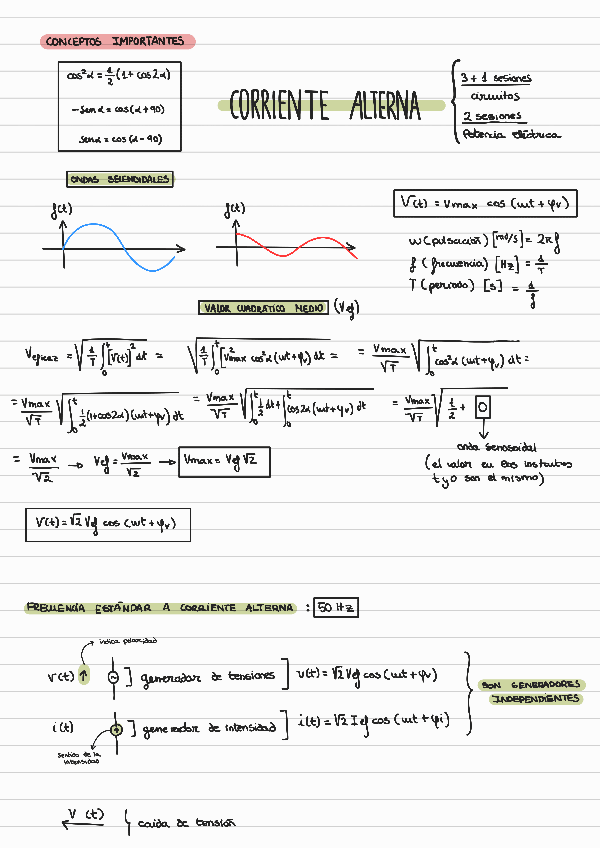 CONCEPTOS IMPORTANTES
cos²α = 1/2 (1 + cos 2α)
-sen α = cos(α+90)
sen α = cos(α-90)
CORRIENTE ALTERNA
3 + 1 sesiones
circuitos
2 sesiones
Potencia eléctrica
ONDAS SENOIDALES
f(t)
f(t)
V(t) = Vmax cos (ωt + φv)
ω (pulsación) [rad/s] = 2πf
f (frecuencia) [Hz] = 1/T
T (periodo) [s] = 1/f
VALOR CUADRÁTICO MEDIO (Vef)
Veficaz = √(1/T ∫₀ᵗ [V(t)]² dt = √(1/T ∫₀ᵗ [V²max cos²α (ωt+φv) dt = = Vmax/√T √(∫₀ᵗ cos²α (ωt+φv) dt =
= Vmax/√T √(∫₀ᵗ 1/2 (1+cos2α)(ωt+φv) dt = Vmax/√T √(∫₀ᵗ 1/2 dt + ∫₀ᵗ cos2α (ωt+φv) dt = Vmax/√T √(1/2 + 0
= Vmax/√2 → Vef = Vmax/√2 → Vmax = Vef √2
onda senosoidal
(el valor en los instantes
t y 0 son el mismo)
V(t) = √2 Vef cos (ωt + φv)
FRECUENCIA ESTÁNDAR A CORRIENTE ALTERNA : 50 Hz
indica polaridad
v(t) ↑ ] generador de tensiones ] v(t) = √2 Vef cos (ωt + φv)
SON GENERADORES
INDEPENDIENTES
i(t) ] generador de intensidad ] i(t) = √2 Ief cos (ωt + φi)
Sentido de la
intensidad
V (t) { caida de tensión